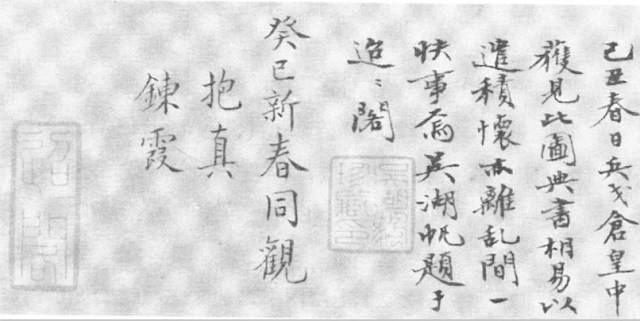 己丑春日兵戈倉皇中
獲見此圖典書相易以
遣積懷亦離乱間一
快事焉吳湖帆題于
迢〻閣
癸巳新春同觀
抱真
鍊霞